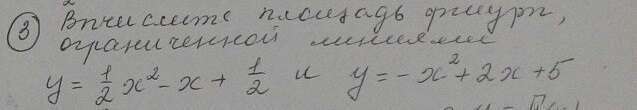 ③ Вычислите площадь фигуры,
ограниченной линиями
y = 1/2 x² - x + 1/2 и y = - x² + 2x + 5